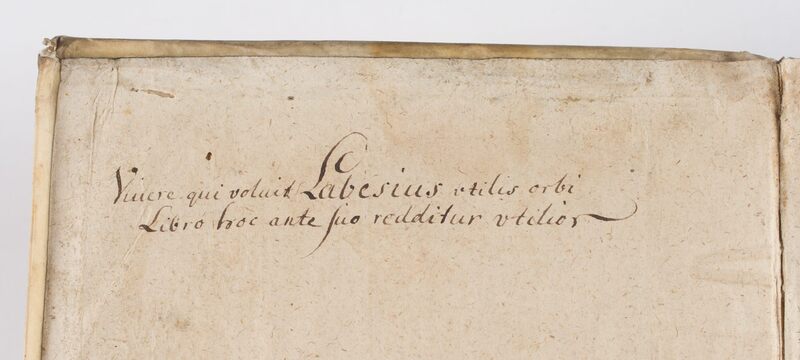 Viuere qui voluit Labesius vtilis orbi
Libro hoc ante suo redditur vtilior